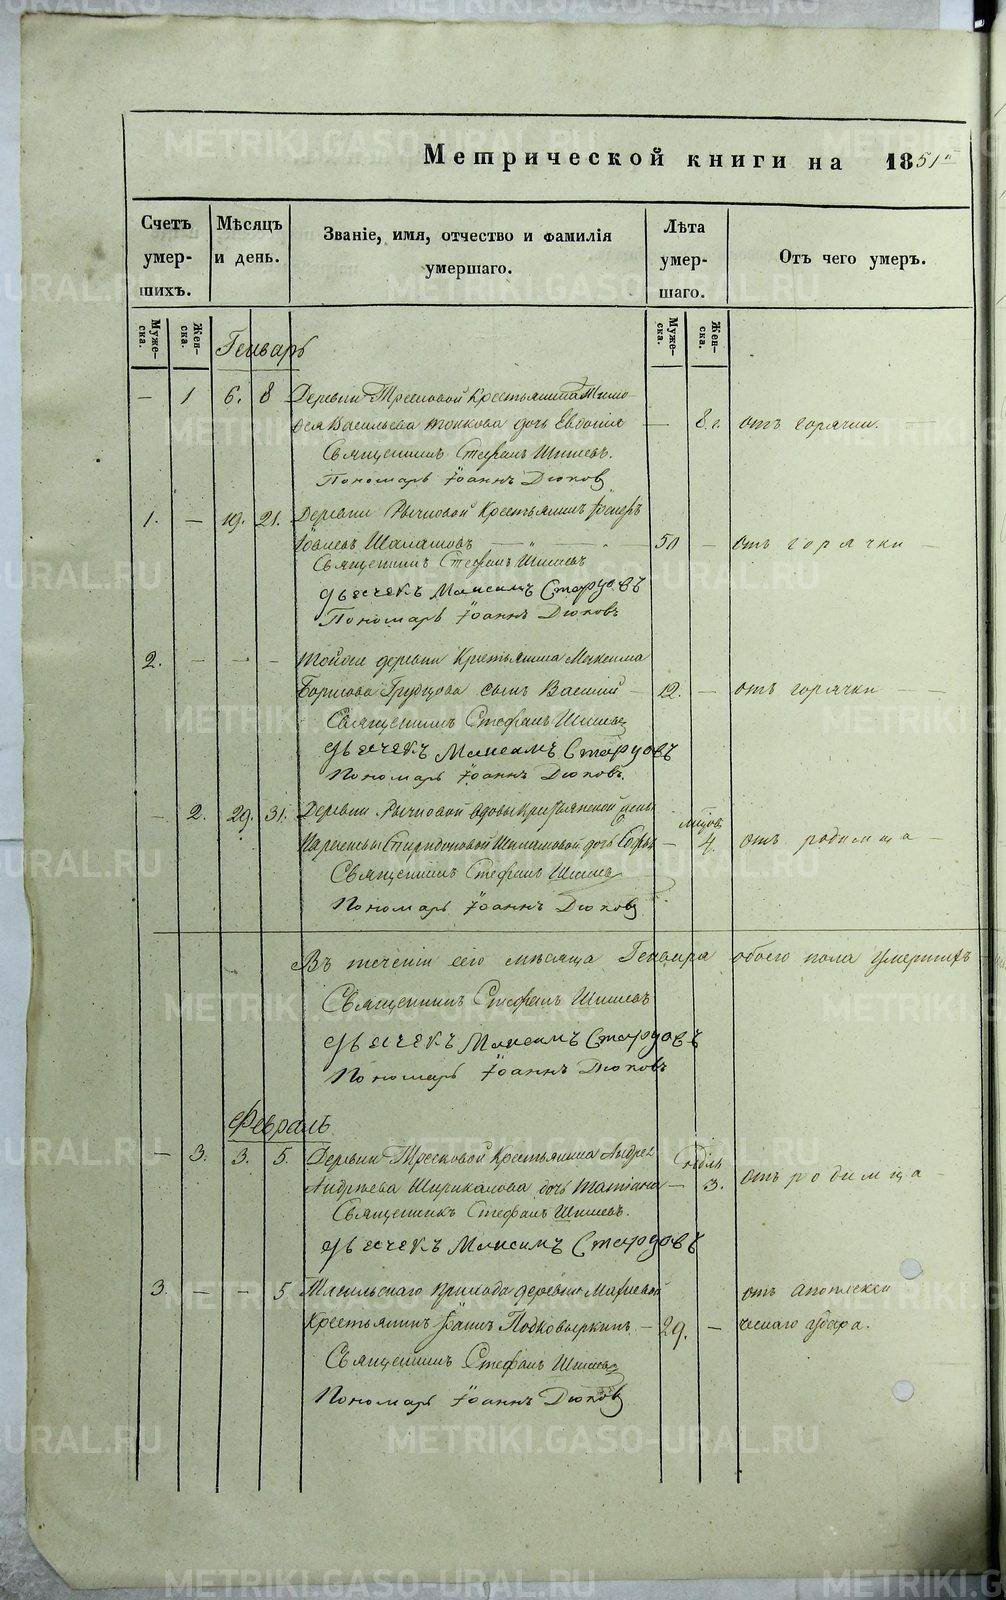 Метрической книги на 1851й
Счетъ умер- шихъ. Мѣсяцъ и день. Званіе, имя, отчество и фамилія умершаго. Лѣта умер- шаго. Отъ чего умеръ.
Муже- ска. Жен- ска. Муже- ска. Жен- ска.
Генварь
— 1 6. 8 Деревни Тресковой Крестьянина Тимо-
ѳея Васильева дочь Евдокія — 8. г. отъ горячки.
Священникъ Стефанъ Шишевъ.
Пономарь Іоаннъ Дюковъ
1. — 19. 21. Деревни Рычковой Крестьянинъ
Іовлевъ Шалашовъ — 50 — отъ горячки —
Священникъ Стефанъ Шишевъ
Дьячекъ Максимъ Старцовъ
Пономарь Іоаннъ Дюковъ
2. — — — Тойже деревни Крестьянина Максима
Борисова Грудцова сынъ Василій — 12. — отъ горячки — —
Священникъ Стефанъ Шишевъ
Дьячекъ Максимъ Старцовъ
Пономарь Іоаннъ Дюковъ.
— 2. 29. 31. Деревни Рычковой вдовы Крестьянской жены
Параскевы Спиридоновой Шалашовой дочь Софья — мѣсяц. 4. отъ родимца —
Священникъ Стефанъ Шишевъ
Пономарь Іоаннъ Дюковъ
Въ теченіи сего мѣсяца Генваря обоего пола умершихъ
Священникъ Стефанъ Шишевъ
Дьячекъ Максимъ Старцовъ
Пономарь Іоаннъ Дюковъ
Февраль
— 3. 3. 5. Деревни Тресковой Крестьянина Андрея
Андреева Ширикалова дочь Татіана — недѣль 3. отъ родимца —
Священникъ Стефанъ Шишевъ.
Дьячекъ Максимъ Старцовъ
3. — — 5 прихода деревни
Крестьянинъ Подковыркинъ — 29. — отъ апоплексическаго удара.
Священникъ Стефанъ Шишевъ
Пономарь Іоаннъ Дюковъ
METRIKI.GASO-URAL.RU